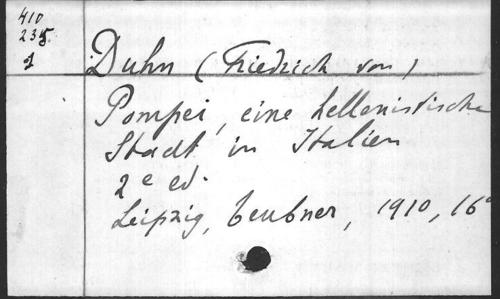 410
235.
1
Duhn (Friedrich von)
Pompei, eine hellenistische
Stadt in Italien
2e ed.
Leipzig, Teubner, 1910, 16°